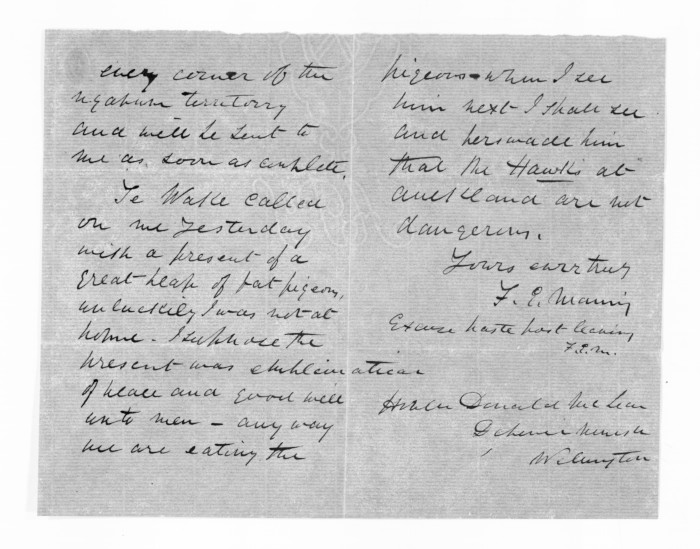 every corner of the
ngapuhi territory
and will be sent to
me as soon as complete.
Te Wake called
on me yesterday
with a present of a
great heap of fat pigeons,
unluckily I was not at
home - I suppose the
present was emblematical
of peace and good will
unto men - any way
we are eating the
pigeons - when I see
him next I shall see
and persuade him
that the Hawks at
auckland are not
dangerous.
Yours very truly
F. E. Maning
Excuse haste post leaving
F.E.M.
Donald McLean
Defence Minister
Wellington